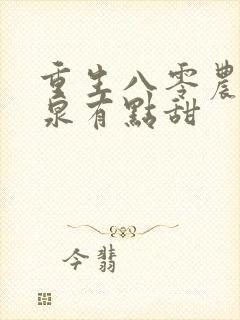 重生八零農
泉有點甜
今翡